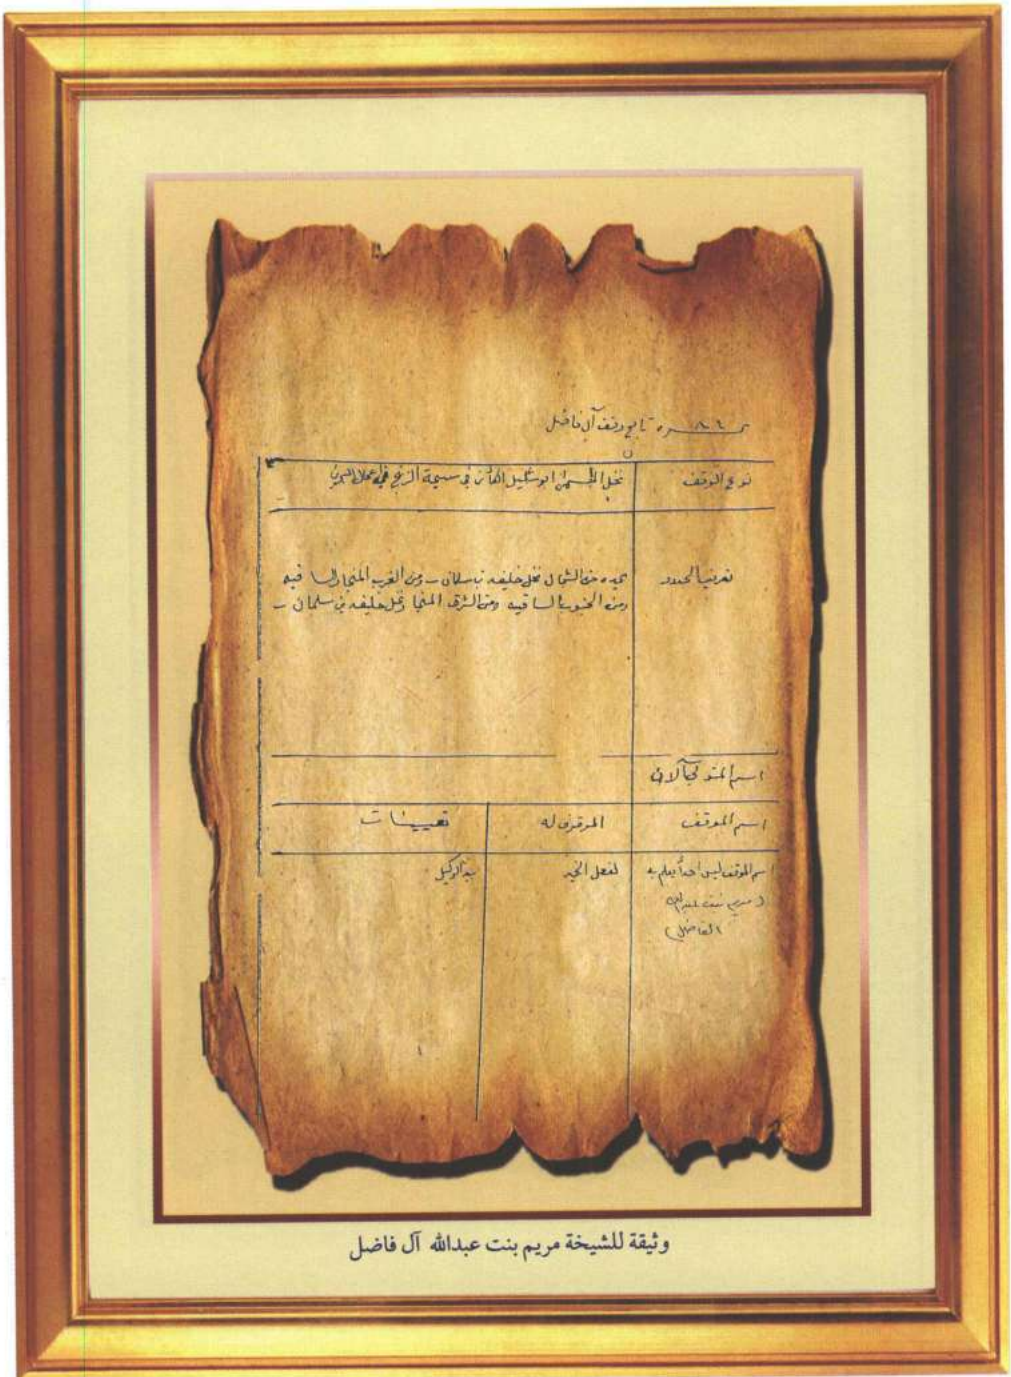 نمـــره ٨٦ تابع وقف آل فاضل
نوع الوقف
نخل المسمى ابوشليل الكائن في سيحة الزنج في اعمال البحرين
تعريف الحدود
يحده من الشمال نخل خليفه بن سلمان – ومن الغرب المنجا والساقيه
ومن الجنوب الساقيه ومن الشرق المنجا ونخل خليفه بن سلمان –
اسم المتولي الآن
اسم الموقف
الموقوف له
تعيينات
اسم الموقف ليس احداً يعلم به
لفعل الخير
بيد الوكيل
(مريم بنت عبدالله
الفاضل)
وثيقة للشيخة مريم بنت عبدالله آل فاضل